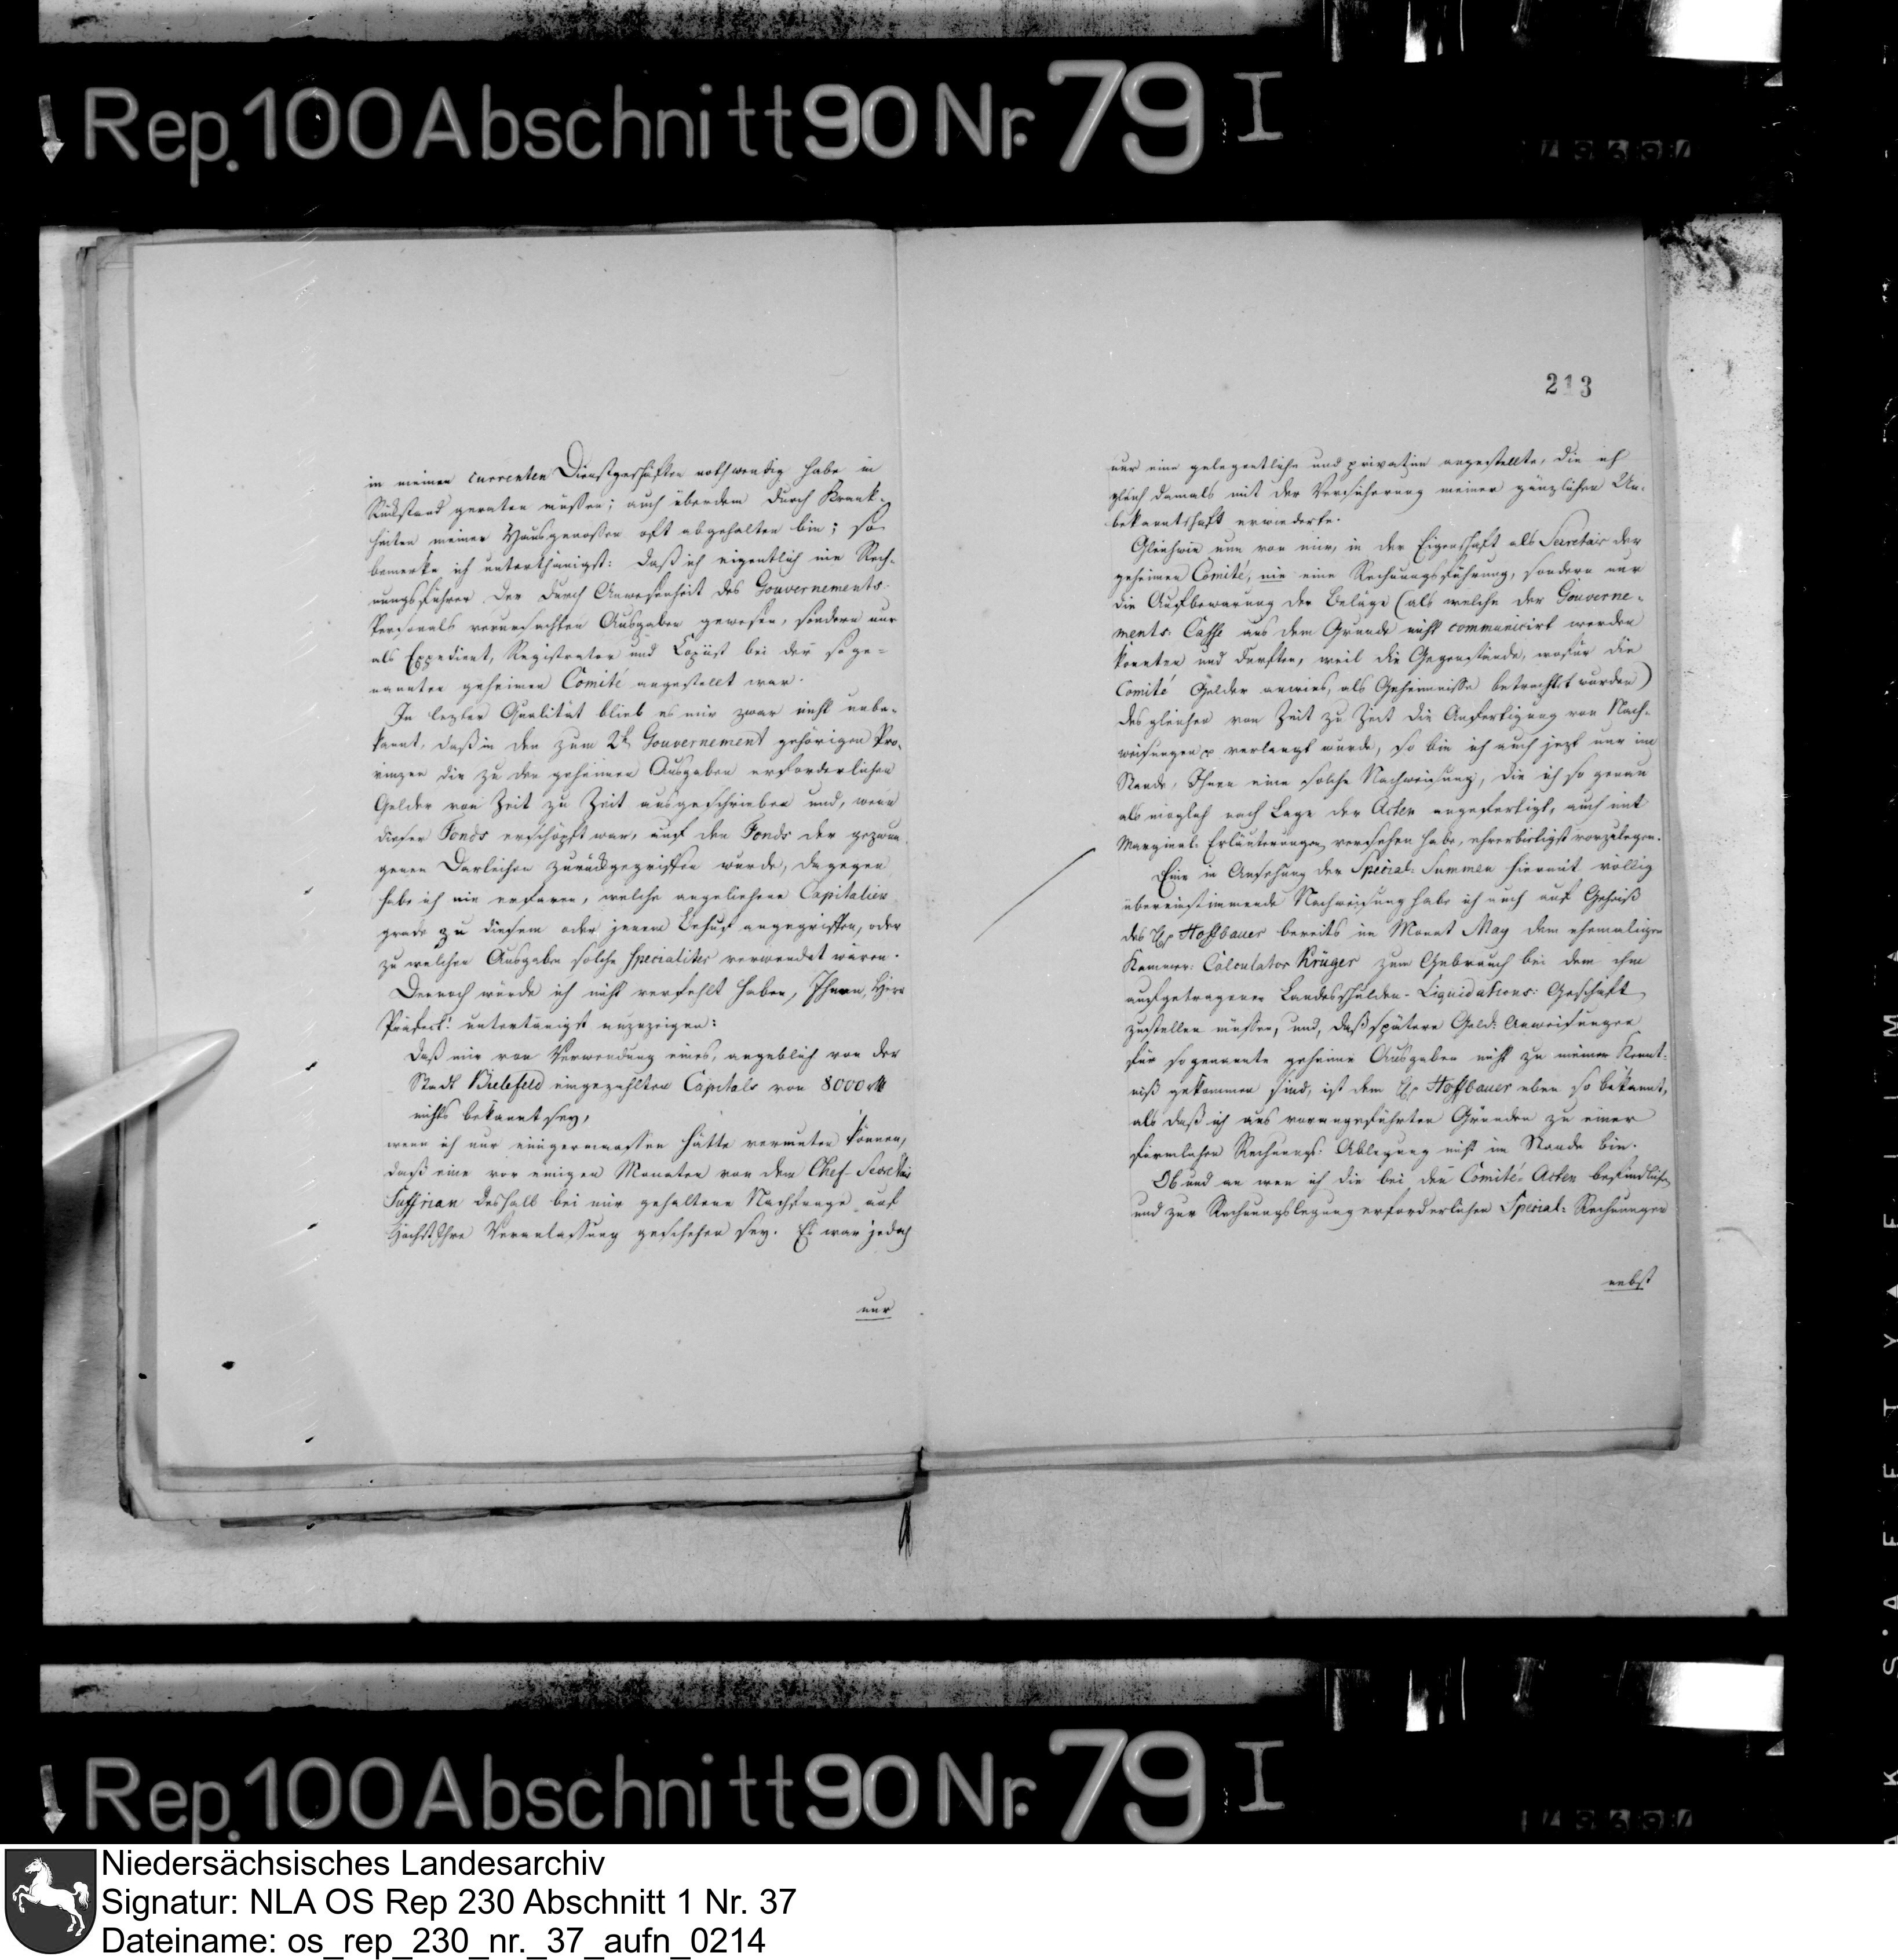 Rep. 100 Abschnitt 90 Nr. 79 I
in meinen currenten Dienstgeschäften nothwendig habe in
Rükstand geraten müssen; auch überdem durch Krank-
heiten meiner Hausgenossen oft abgehalten bin; so
bemerke ich unterthänigst: daß ich eigentlich nie Rech-
nungsführer der durch Anwesenheit des Gouvernements-
Personals verursachten Ausgaben gewesen, sondern nur
als Expedient, Registrator und Copiist bei der soge-
nannten geheimen Comité angestellt war.
In lezter Qualität blieb es mir zwar nicht unbe-
kannt, daß in den zum 2t Gouvernement gehörigen Pro-
vinzen die zu den geheimen Ausgaben erforderlichen
Gelder von Zeit zu Zeit ausgeschrieben und, wenn
dieser Fonds erschöpft war, auf den Fonds der gezwun-
genen Darleihen zurückgegriffen wurde, dagegen
habe ich nie erfaren, welche angeliehene Capitalien
grade zu diesem oder jenem Behuf angegriffen, oder
zu welchen Ausgaben solche specialiter verwendet wären.
Dennoch würde ich nicht verfehlt haben, Ihnen, Herr
Präfect! untertänigst anzuzeigen:
daß mir von Verwendung eines, angeblich von der
Stadt Bielefeld eingezahlten Capitals von 8000
nichts bekannt sey,
wenn ich nur einigermaassen hätte vermuten können,
daß eine vor einigen Monaten von dem Chef-Secretair
Suffrian deshalb bei mir gehaltene Nachfrage auf
HöchstIhre Veranlassung geschehen sey. Es war jedoch
nur
213
nur eine gelegentliche und privatim angestellte, die ich
gleich damals mit der Versicherung meiner gänzlichen Un-
bekanntschaft erwiederte.
Gleichwie nun von mir, in der Eigenschaft als Secretair der
geheimen Comité, nie eine Rechnungsführung, sondern nur
die Aufbewarung der Beläge (als welche der Gouverne-
ments-Casse aus dem Grunde nicht communicirt werden
konnten und durften, weil die Gegenstände, wofür die
Comité Gelder anwies, als Geheimnisse betrachtet wurden)
desgleichen von Zeit zu Zeit die Anfertigung von Nach-
weisungen verlangt wurde, so bin ich auch jezt nur im
Stande, Ihnen eine solche Nachweisung, die ich so genau
als möglich nach Lage der Acten angefertigt, auch mit
Marginal-Erläuterungen versehen habe, ehrerbietigst vorzulegen.
Eine in Ansehung der Special-Summen hiermit völlig
übereinstimmende Nachweisung habe ich auch auf Geheiß
des Hoffbauer bereits im Monat May dem ehemaligen
Kammer-Calculator Krüger zum Gebrauch bei dem ihm
aufgetragenen Landesschulden-Liquidations-Geschäft
zustellen müssen, und, daß spätere Geld-Anweisungen
für sogenannte geheime Ausgaben nicht zu meiner Kennt-
niß gekommen sind, ist dem Hoffbauer eben so bekannt,
als daß ich aus vorangeführten Gründen zu einer
förmlichen Rechnungs-Ablegung nicht im Stande bin.
Ob und an wen ich die bei den Comité-Acten befindlichen
und zur Rechnungslegung erforderlichen Special-Rechnungen
nebst
Rep. 100 Abschnitt 90 Nr. 79 I
Niedersächsisches Landesarchiv
Signatur: NLA OS Rep 230 Abschnitt 1 Nr. 37
Dateiname: os_rep_230_nr._37_aufn_0214